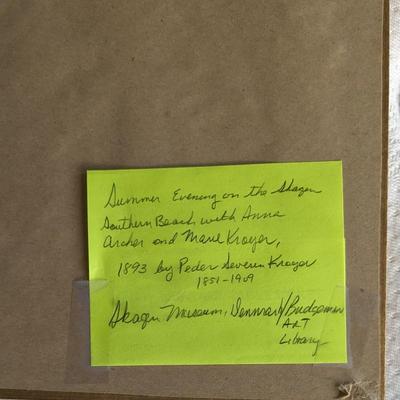 Summer Evening on the Skagen
Southern Beach with Anna
Archer and Marie Kroyer,
1893 by Peder Severin Kroyer
1851-1909
Skagen Museum, Denmark/Bridgeman
ART
Library